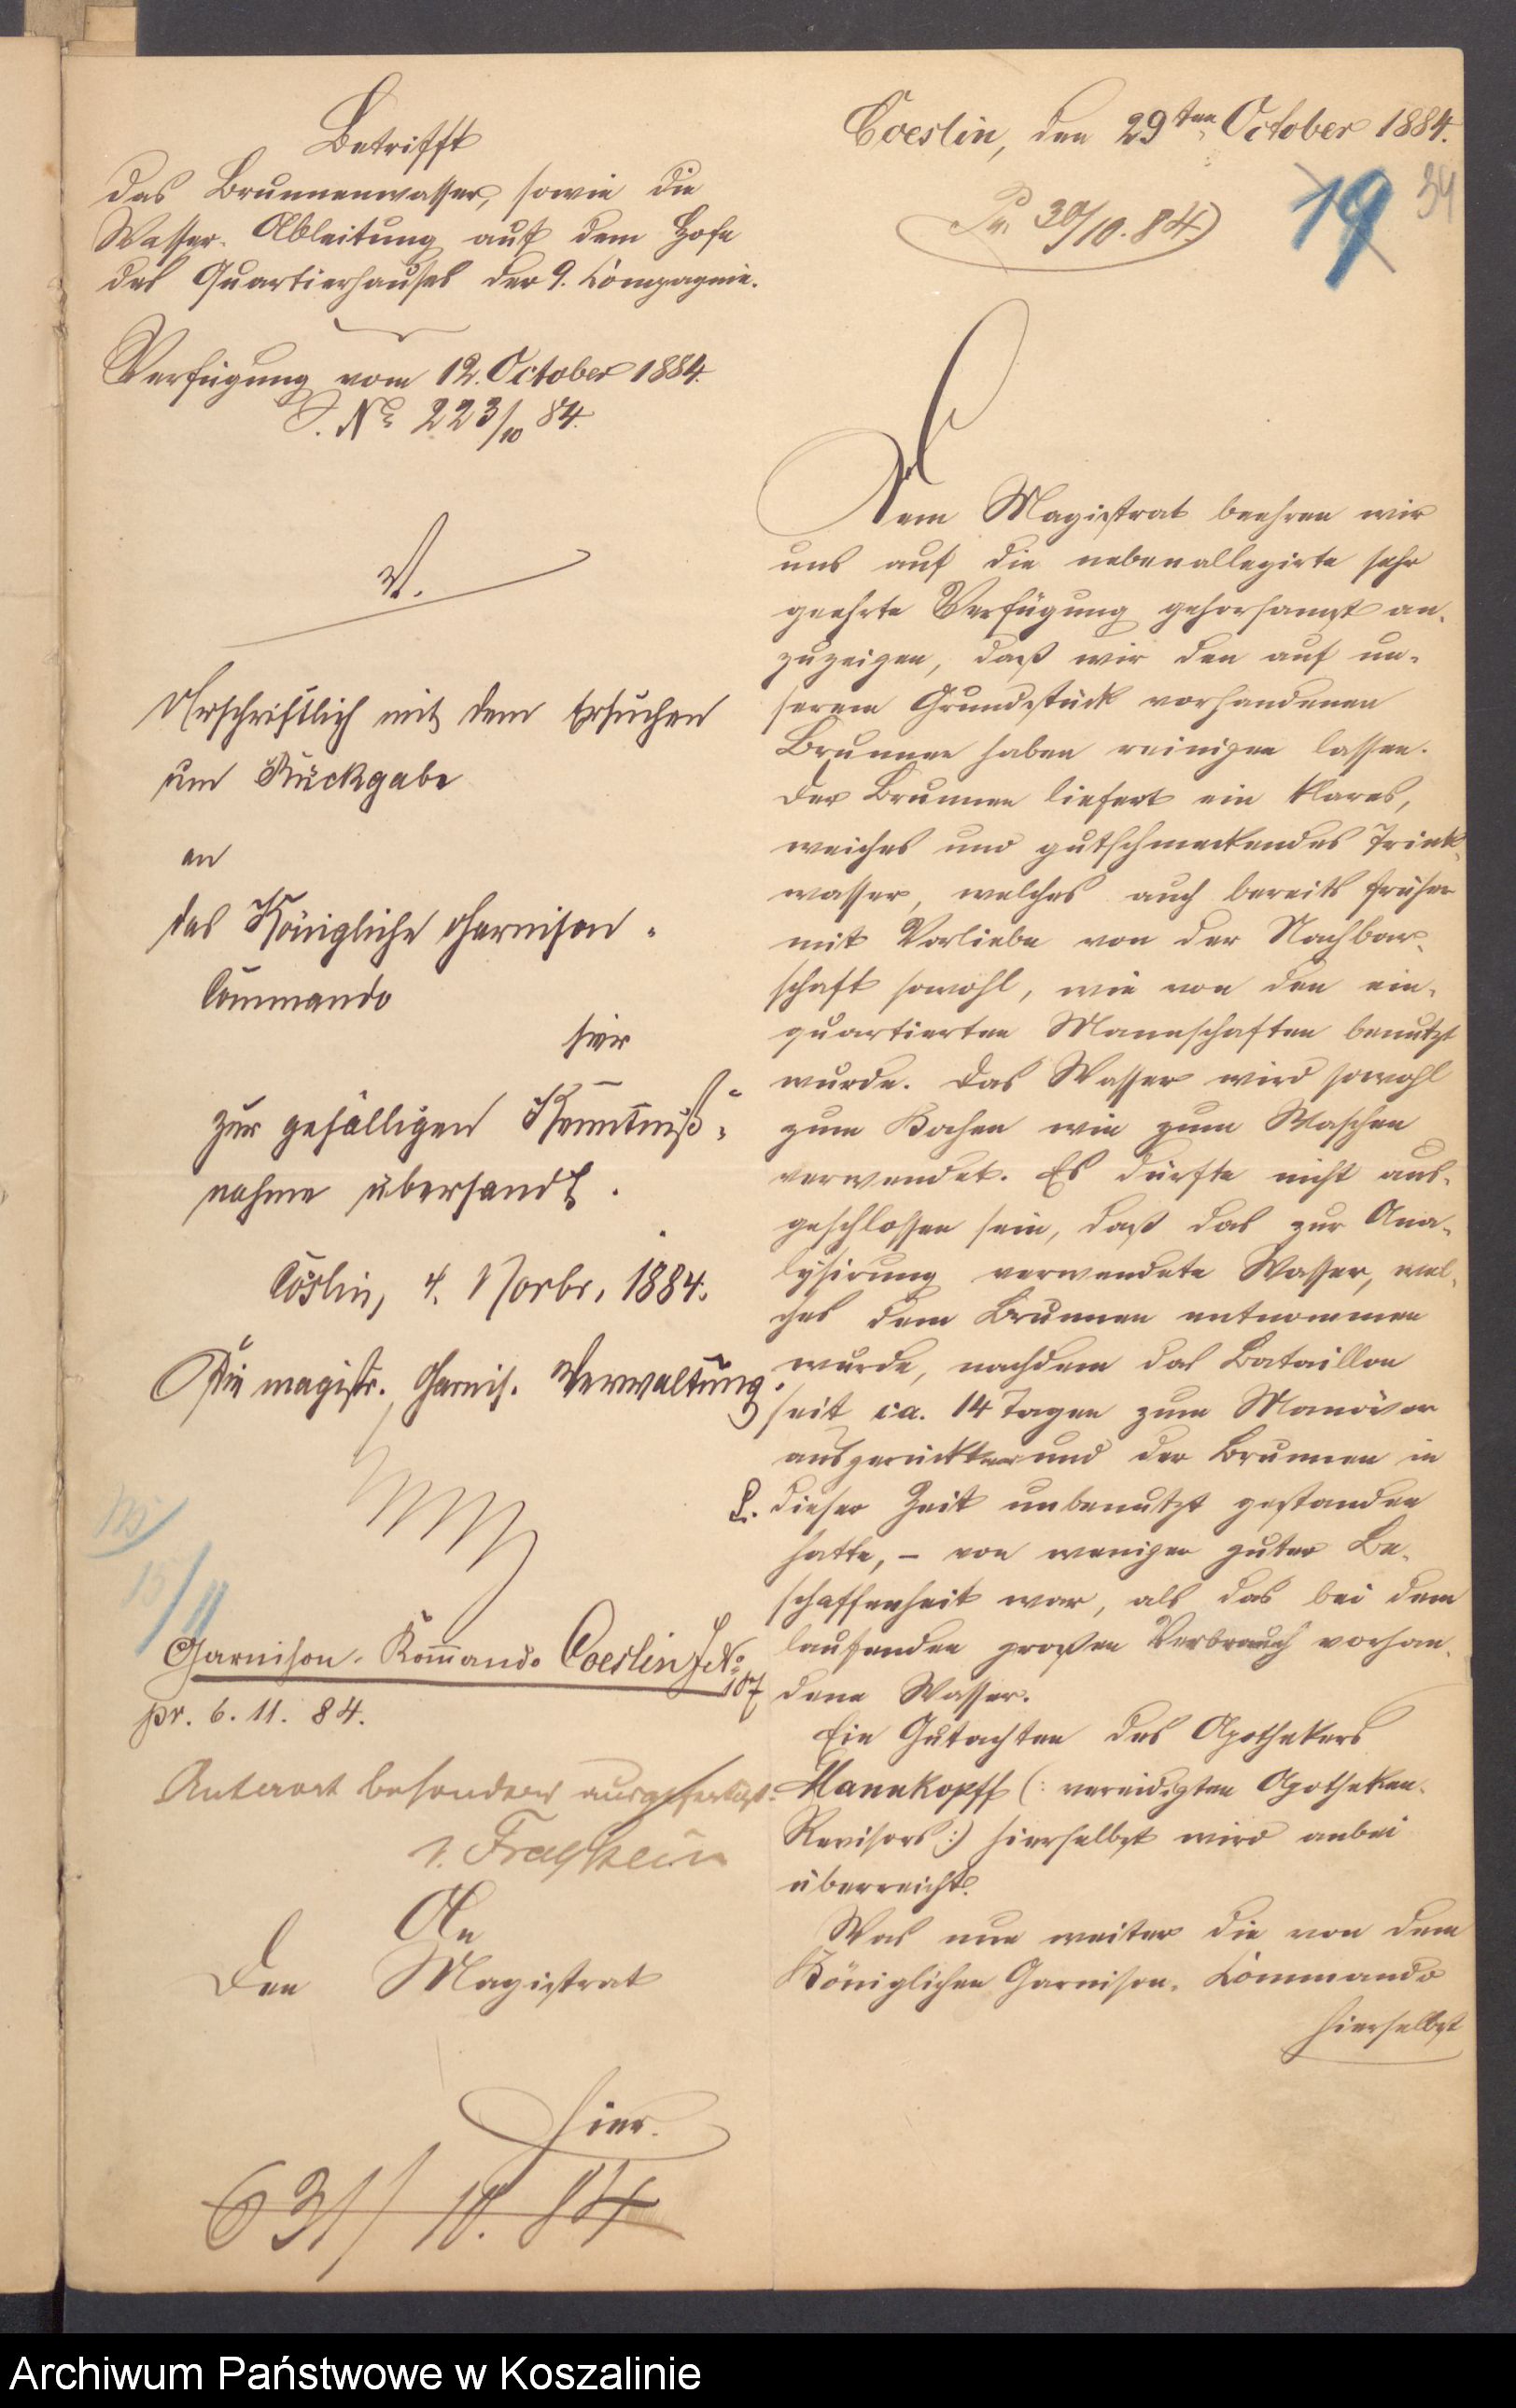 Betrifft
das Brunnenwasser, sowie die
Wasser-Ableitung auf dem Hofe
des Quartierhauses der 9. Compagnie.
Verfügung vom 12. October 1884.
J. No 223/10 84.
V.
Urschriftlich mit dem Ersuchen
um Rückgabe
an
das Königliche Garnison-
Commando
hier
zur gefälligen Kenntniß-
nahme übersandt.
Cöslin, 4. Novbr. 1884.
Die magistr. Garnis. Verwaltung
15/11
Garnison-Kommando Coeslin J. No
107
pr. 6. 11. 84.
Antwort besonders ausgefertigt.
An
den Magistrat
hier.
631/10. 84
Coeslin, den 29ten October 1884.
Pr. 30/10. 84.
19
34
Dem Magistrat beehren wir
uns auf die nebenallegirte sehr
geehrte Verfügung gehorsamst an-
zuzeigen, daß wir den auf un-
serem Grundstück vorhandenen
Brunnen haben reinigen lassen.
Der Brunnen liefert ein klares,
weiches und gutschmeckendes Trink-
wasser, welches auch bereits früher
mit Vorliebe von der Nachbar-
schaft sowohl, wie von den ein-
quartierten Mannschaften benutzt
wurde. Das Wasser wird sowohl
zum Kochen wie zum Waschen
verwendet. Es dürfte nicht aus-
geschlossen sein, daß das zur Ana-
lysirung verwendete Wasser, wel-
ches dem Brunnen entnommen
wurde, nachdem das Bataillon
seit ca. 14 Tagen zum Manöver
ausgerückt war und der Brunnen in
dieser Zeit unbenutzt gestanden
hatte, – von weniger guter Be-
schaffenheit war, als das bei dem
laufenden großen Verbrauch vorhan-
dene Wasser.
Ein Gutachten des Apothekers
Mannkopff (: vereidigten Apotheken-
Revisors :) hierselbst wird anbei
überreicht.
Was nun weiter die von dem
Königlichen Garnison-Commando
hierselbst
Archiwum Państwowe w Koszalinie